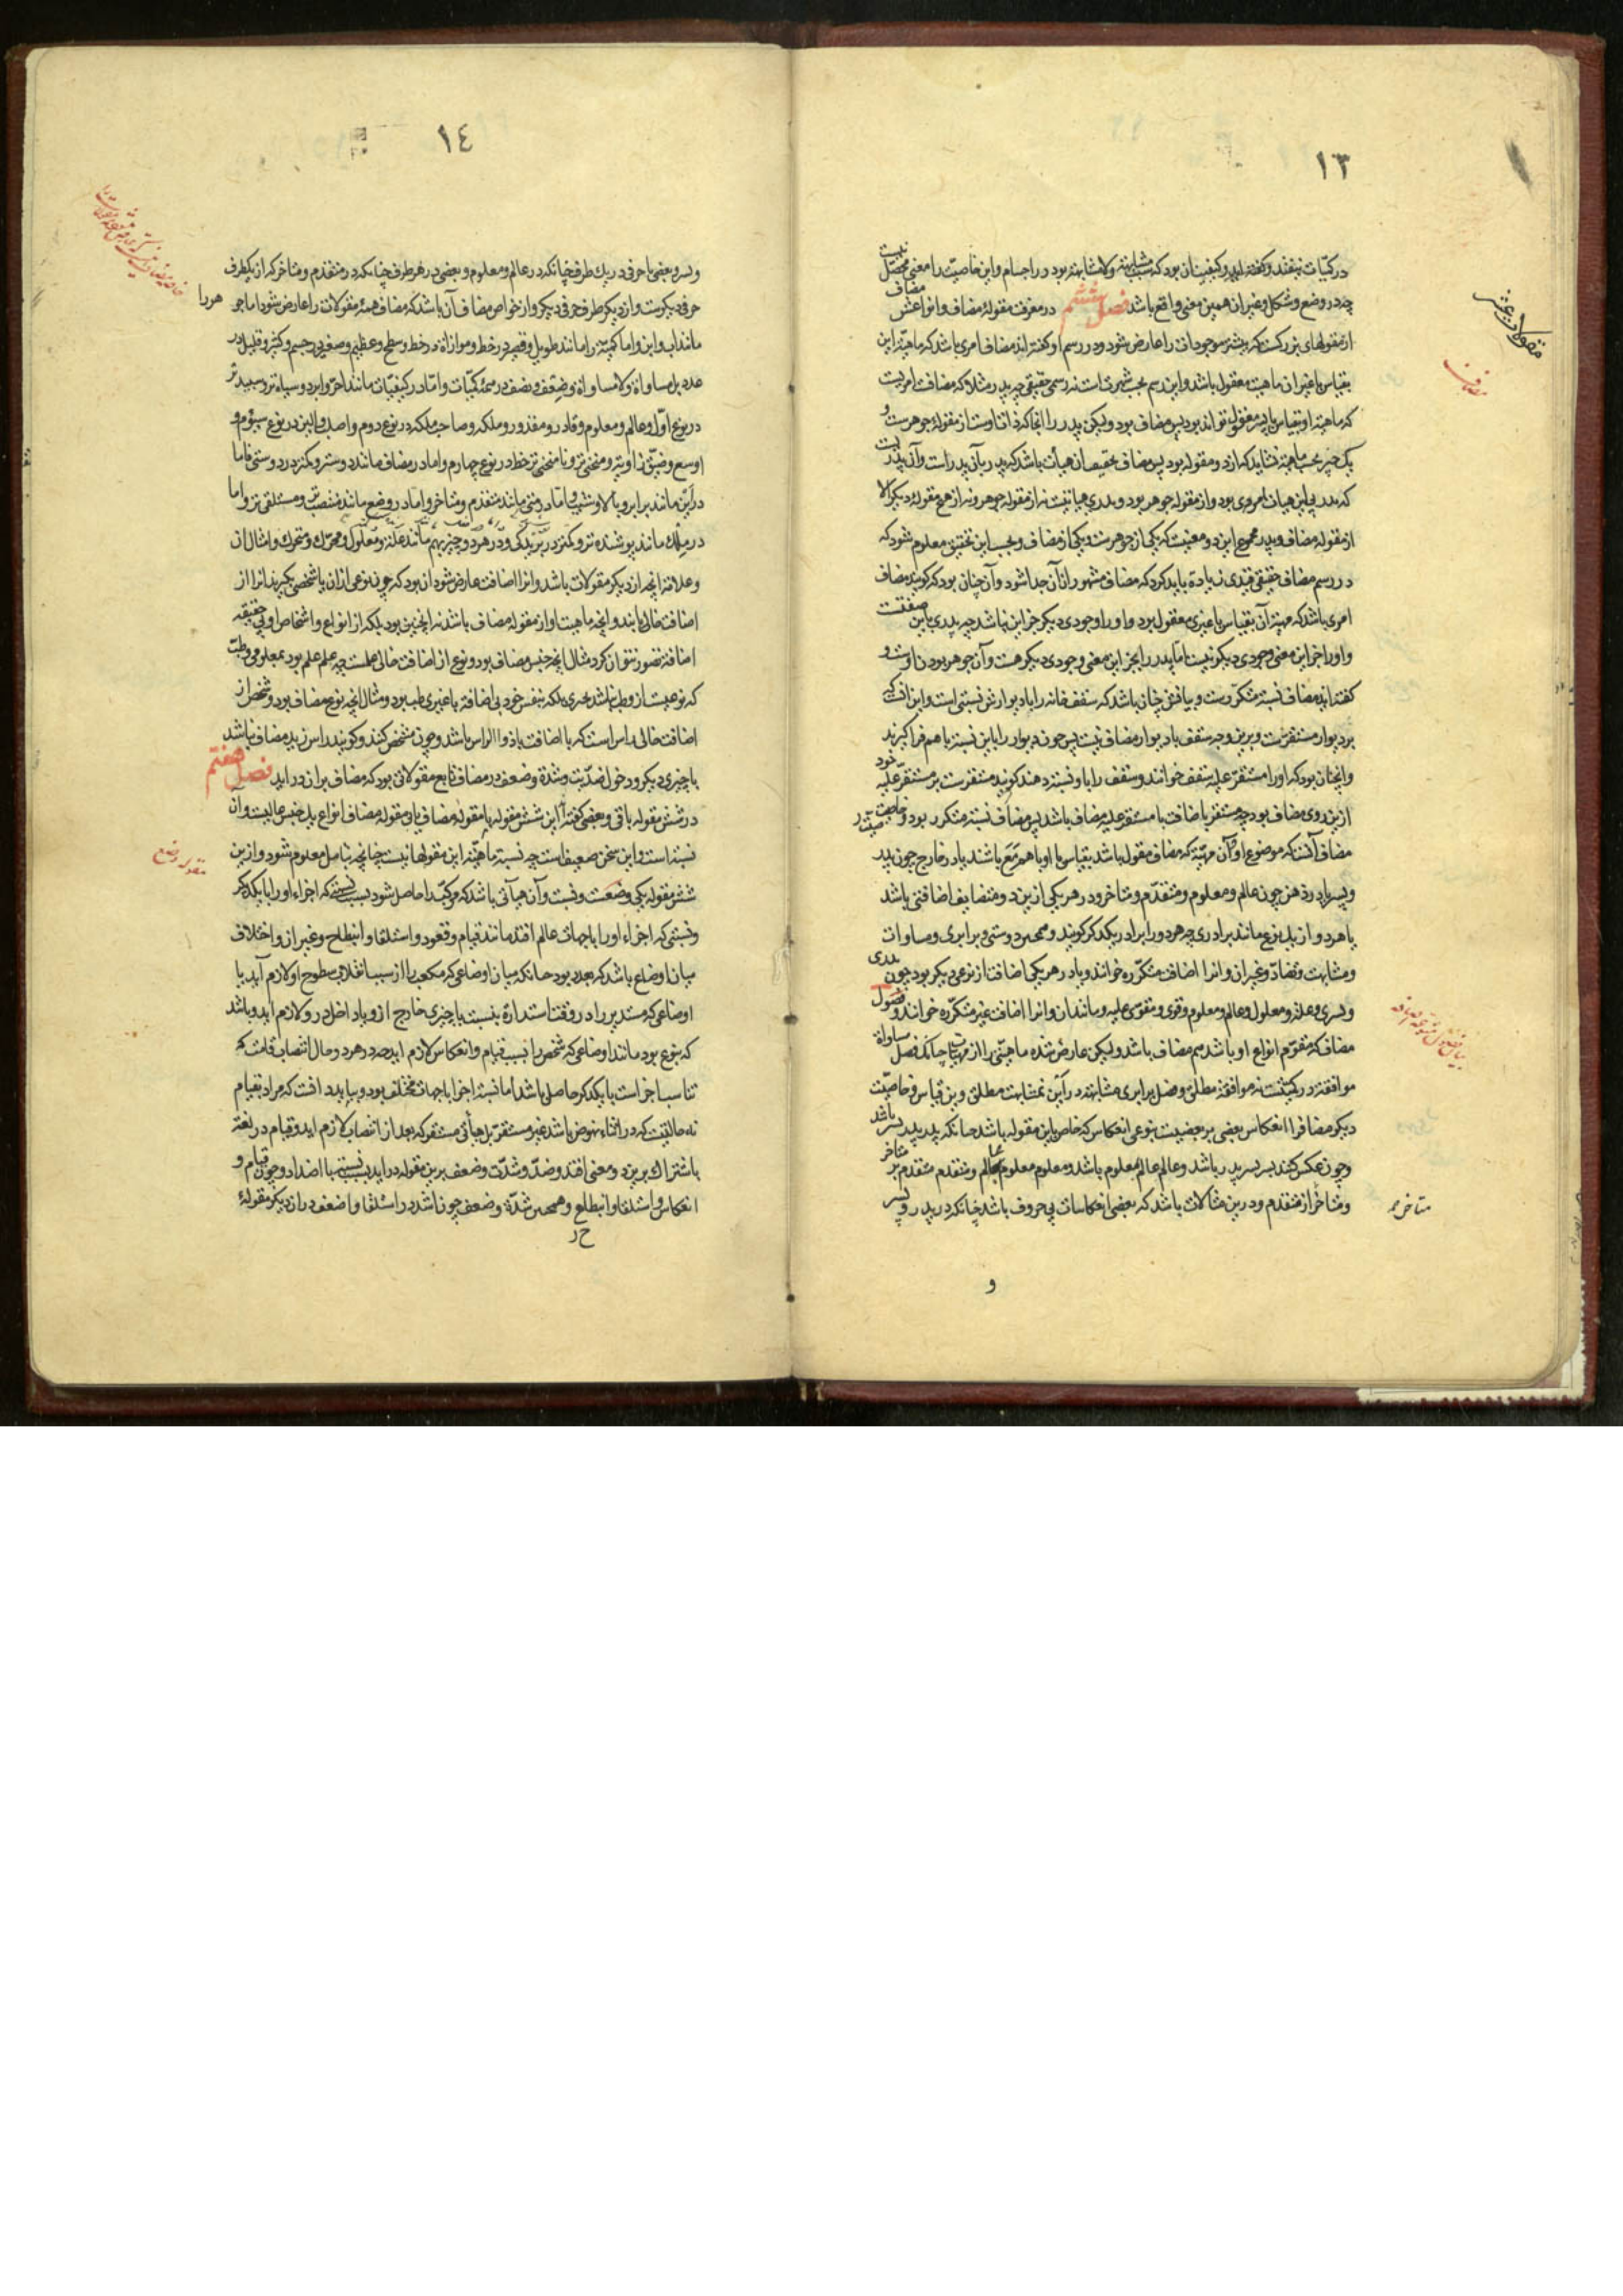 ١٣
در کیّات نیفتد و گفته‌اند در کیفیت آن بود که بسبب مشابهت و لامشابهت بود در اجسام و این خاصیت را معنی محصّل نیست
چه در وضع و شکل و غیر آن همین معنی واقع باشد فصل ششم در معرفت مقولهٔ مضاف و انواعش مضاف
از مقولهای بزرگست که بیشتر موجودات را عارض شود و در رسم او گفته‌اند مضاف امری باشد که ماهیّت این
بقیاس با غیر آن ماهیت معقول باشد و این رسم بحسب شهرت است نه رسمی حقیقی چه پدر مثلا که مضافت امریست
که ماهیّت او بقیاس با پسر معقول تواند بود پس مضاف بود ولیکن پدر را آنجا که ذات اوست از مقولهٔ جوهرست و
یک چیز بحسب ماهیّت نشاید که از دو مقوله بود پس مضاف بحقیقت آن هیأت باشد که پدر بآن پدر است و آن پدریست
که پدر بی این هیأت امروی بود و از مقوله جوهر بود و پدری هیأتیست نه از مقوله جوهر و نه از هیچ مقوله دیگر الا
از مقوله مضاف و پدر مجموع این دو معنیست که یکی از جوهرست و یکی از مضاف و بحسب این تحقیق معلوم شود که
در رسم مضاف حقیقی قیدی زیادة باید کرد که مضاف مشهور از آن جدا شود و آن چنان بود که گویند مضاف
امری باشد که مهیّة آن بقیاس با غیری معقول بود و او را وجودی دیگر جز این نباشد چه پدری با این صفتست
و او را جز این معنی وجودی دیگر نیست اما پدر را بجز این معنی وجودی دیگر هست و آن جوهر بودن اوست و
گفته‌اند مضاف نسبة متکرّرست و بیانش چنان باشد که سقف خانه را با دیوارش نسبتی است و این آنست که
بر دیوار مستقرست و برین وجه سقف با دیوار مضاف نیست پس چون دیوار را با این نسبة باهم فراگیرند
و آنچنان بود که او را مستقرّ علیه سقف خوانند و سقف را باو نسبة دهند گویند مستقرست بر مستقرّ علیه خود
ازین روی مضاف بود چه مستقر باضافت با مستقر علیه مضاف باشد پس مضاف نسبة متکرر بود و خاصیت
مضاف آنست که موضوع او و آن مهیّة که مضاف مقوله باشد بقیاس با او باهم مع باشند یا در خارج چون پدر
و پسر یا در ذهن چون عالم و معلوم و متقدّم و متاخر و در هر یکی ازین دو متضایف اضافتی باشد
یا هر دو از یک نوع مانند برادری چه هر دو را برادر یکدیگر گویند و همچنین دوستی و برابری و مساوات
و مشابهت و تضادّ و غیر آن و آنرا اضافت متکرّره خوانند و یا در هر یکی اضافت از نوعی دیگر بود چون پدری
و پسری و علة و معلول و عالم و معلوم و قوی و مقوی علیه و مانند آن و آنرا اضافت غیر متکرّره خوانند و فصول
مضاف که مقوّم انواع او باشد هم مضاف باشد ولیکن عارض شده ماهیتی را از مهیّات چنانکه فصل مساواة
موافقة در کمیّتست نه موافقة مطلق و فصل برابری مشابهة در این نه مشابهت مطلق و برین قیاس و خاصیّت
دیگر مضاف را انعکاس بعضی بر بعضیست بنوعی انعکاس که خاص باین مقوله باشد چنانکه پدر پدر پسر باشد
و چون عکس کنند پسر پسر پدر باشد و عالم عالم بمعلوم باشد و معلوم معلوم بعالم و متقدم متقدم بر متاخر
و متاخر از متقدم و درین مثالات باشد که بعضی انعکاسات بی حروف باشد چنانکه در پدر و پسر
و
مقولات عشر
مضاف
متاخر
١٤
و پسر و بعضی با حرفی در یک طرف چنانکه در عالم و معلوم و بعضی در هر طرف چنانکه در متقدم و متاخر که از یکطرف
حرفی دیگرست و از دیگر طرف حرفی دیگر و از خواص مضاف آن باشد که مضاف همهٔ مقولات را عارض شود اما جوهر را
مانند اب و ابن و اما کمیّة را مانند طویل و قصیر در خط و موازاة در خط و سطح و عظیم و صغیر در جسم و کثیر و قلیل در
عدد بل مساواة و لامساواة و ضعف و نصف در همهٔ کمیّات و امّا در کیفیّات مانند احرّ و ابرد و سیاه‌تر و سپیدتر
در نوع اوّل و عالم و معلوم و قادر و مقدور و ملکه و صاحب ملکه در نوع دوم و اصلب و الین در نوع سیوم و
اوسع و ضیّق زاویة و منحنی‌تر و نامنحنی‌تر خط در نوع چهارم و اما در مضاف مانند دوستر و کمتر در دوستی و اما
در این مانند برابر و بالا و شیب و امّا در متی مانند متقدم و متاخر و امّا در وضع مانند منتصب‌تر و مستلقی‌تر و اما
در ملک مانند پوشنده‌تر
و علامة آنچه از دیگر مقولات باشد و آنرا اضافت عارض شود آن بود که چون نوعی از آن یا شخصی بگیرند آنرا از
اضافت خالی یابند و آنچه ماهیت او از مقوله مضاف باشد نه اینچنین بود بلکه از انواع و اشخاص او بی حقیقة
اضافة تصور نتوان کرد مثال آنچه جنس مضاف بود و نوع از اضافت خالی علمست چه علم علم بود بمعلومی و طبّ
که نوعیست از و طب نباشد بچیزی بلکه بنفس خود بی اضافة با غیری طب بود و مثال آنچه نوع مضاف بود و شخص از
اضافت خالی راس است که با اضافت با ذو الراس باشد و چون مشخص کنند و گویند راس زید مضاف نباشد
با چیزی دیگر و دخول ضدّیت و شدّة و ضعف در مضاف تابع مقولاتی بود که مضاف بر آن در آید فصل هفتم
در شش مقوله باقی و بعضی گفته‌اند این شش مقوله با مقوله مضاف یا بی مقوله مضاف انواع یک جنس عالیست و آن
نسبة است و این سخن ضعیف است چه نسبة ماهیّة این مقولها نیست چنانچه بتامل معلوم شود و ازین
شش مقوله یکی وضعست و نسبت و آن هیأتی باشد که مرکّب را حاصل شود بسبب نسبتی که اجزاء او را با یکدیگر
و نسبتی که اجزاء او را با جهات عالم افتد مانند قیام و قعود و استلقا و انبطاح و غیر آن و اختلاف
میان اوضاع باشد که بعدد بود چنانکه میان اوضاعی که مکعب را از سبب انقلاب سطوح او لازم آید یا
اوضاعی که مستدیر را در وقت استدارة بنسبت با چیزی خارج ازو یا داخل درو لازم آید و باشد
که بنوع بود مانند اوضاعی که شخص را بسبب قیام و انعکاس لازم آید چه در هر دو حال انتصاب قامت که
تناسب اجزاست با یکدیگر حاصل باشد اما نسبة اجزا با جهات مختلف بود و بباید دانست که مراد بقیام
نه حالتیست که در اثناء نهوض باشد غیر مستقر بل هیأتی مستقر که بعد از انتصاب لازم آید و قیام در لغة
باشتراک برین دو معنی افتد و ضدّ و شدّت و ضعف برین مقوله در آید بسبب نسبتها با اضداد و چون قیام و
انعکاس و استلقا و انبطاح و همچنین شدّة و ضعف چون اشد در استلقا و اضعف در آن دیگر مقولهٔ
مقوله وضع